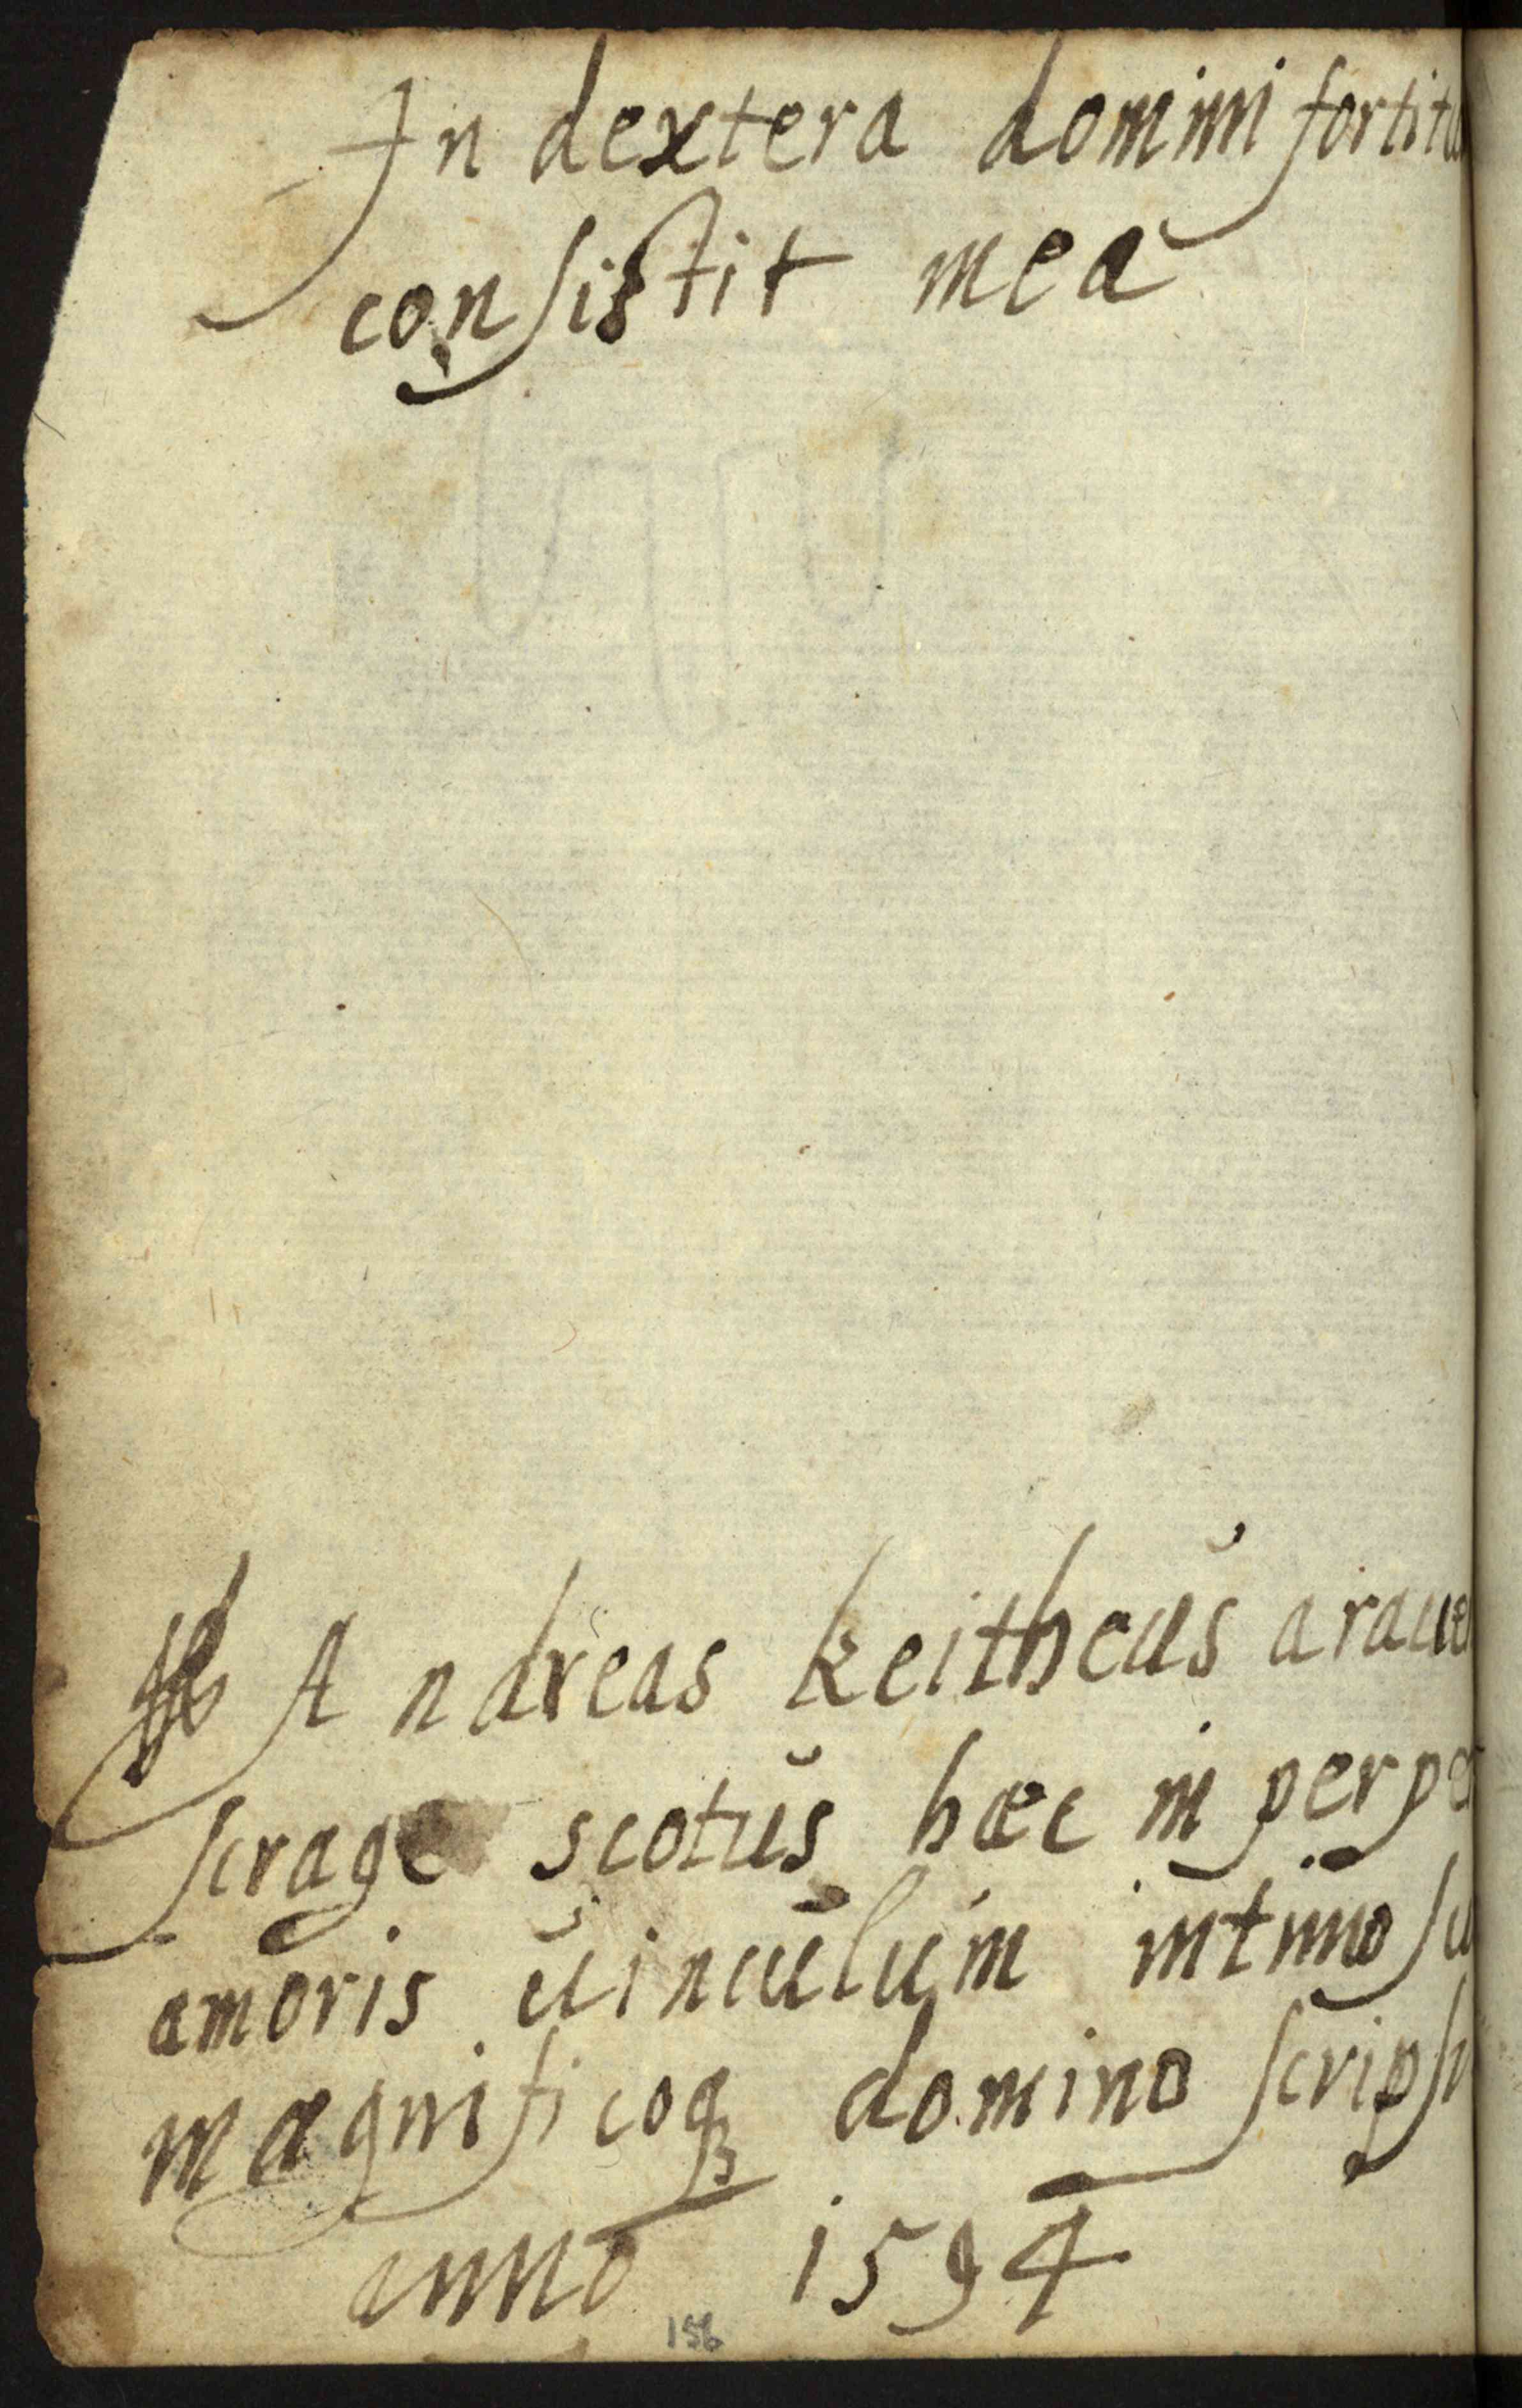 In dextera domini fortitu
consistit mea
Andreas keitheus a raue
scrage scotus hæc in perpe
amoris uinculum intimo su
magnificoq; domino scripsi
anno 1594
156